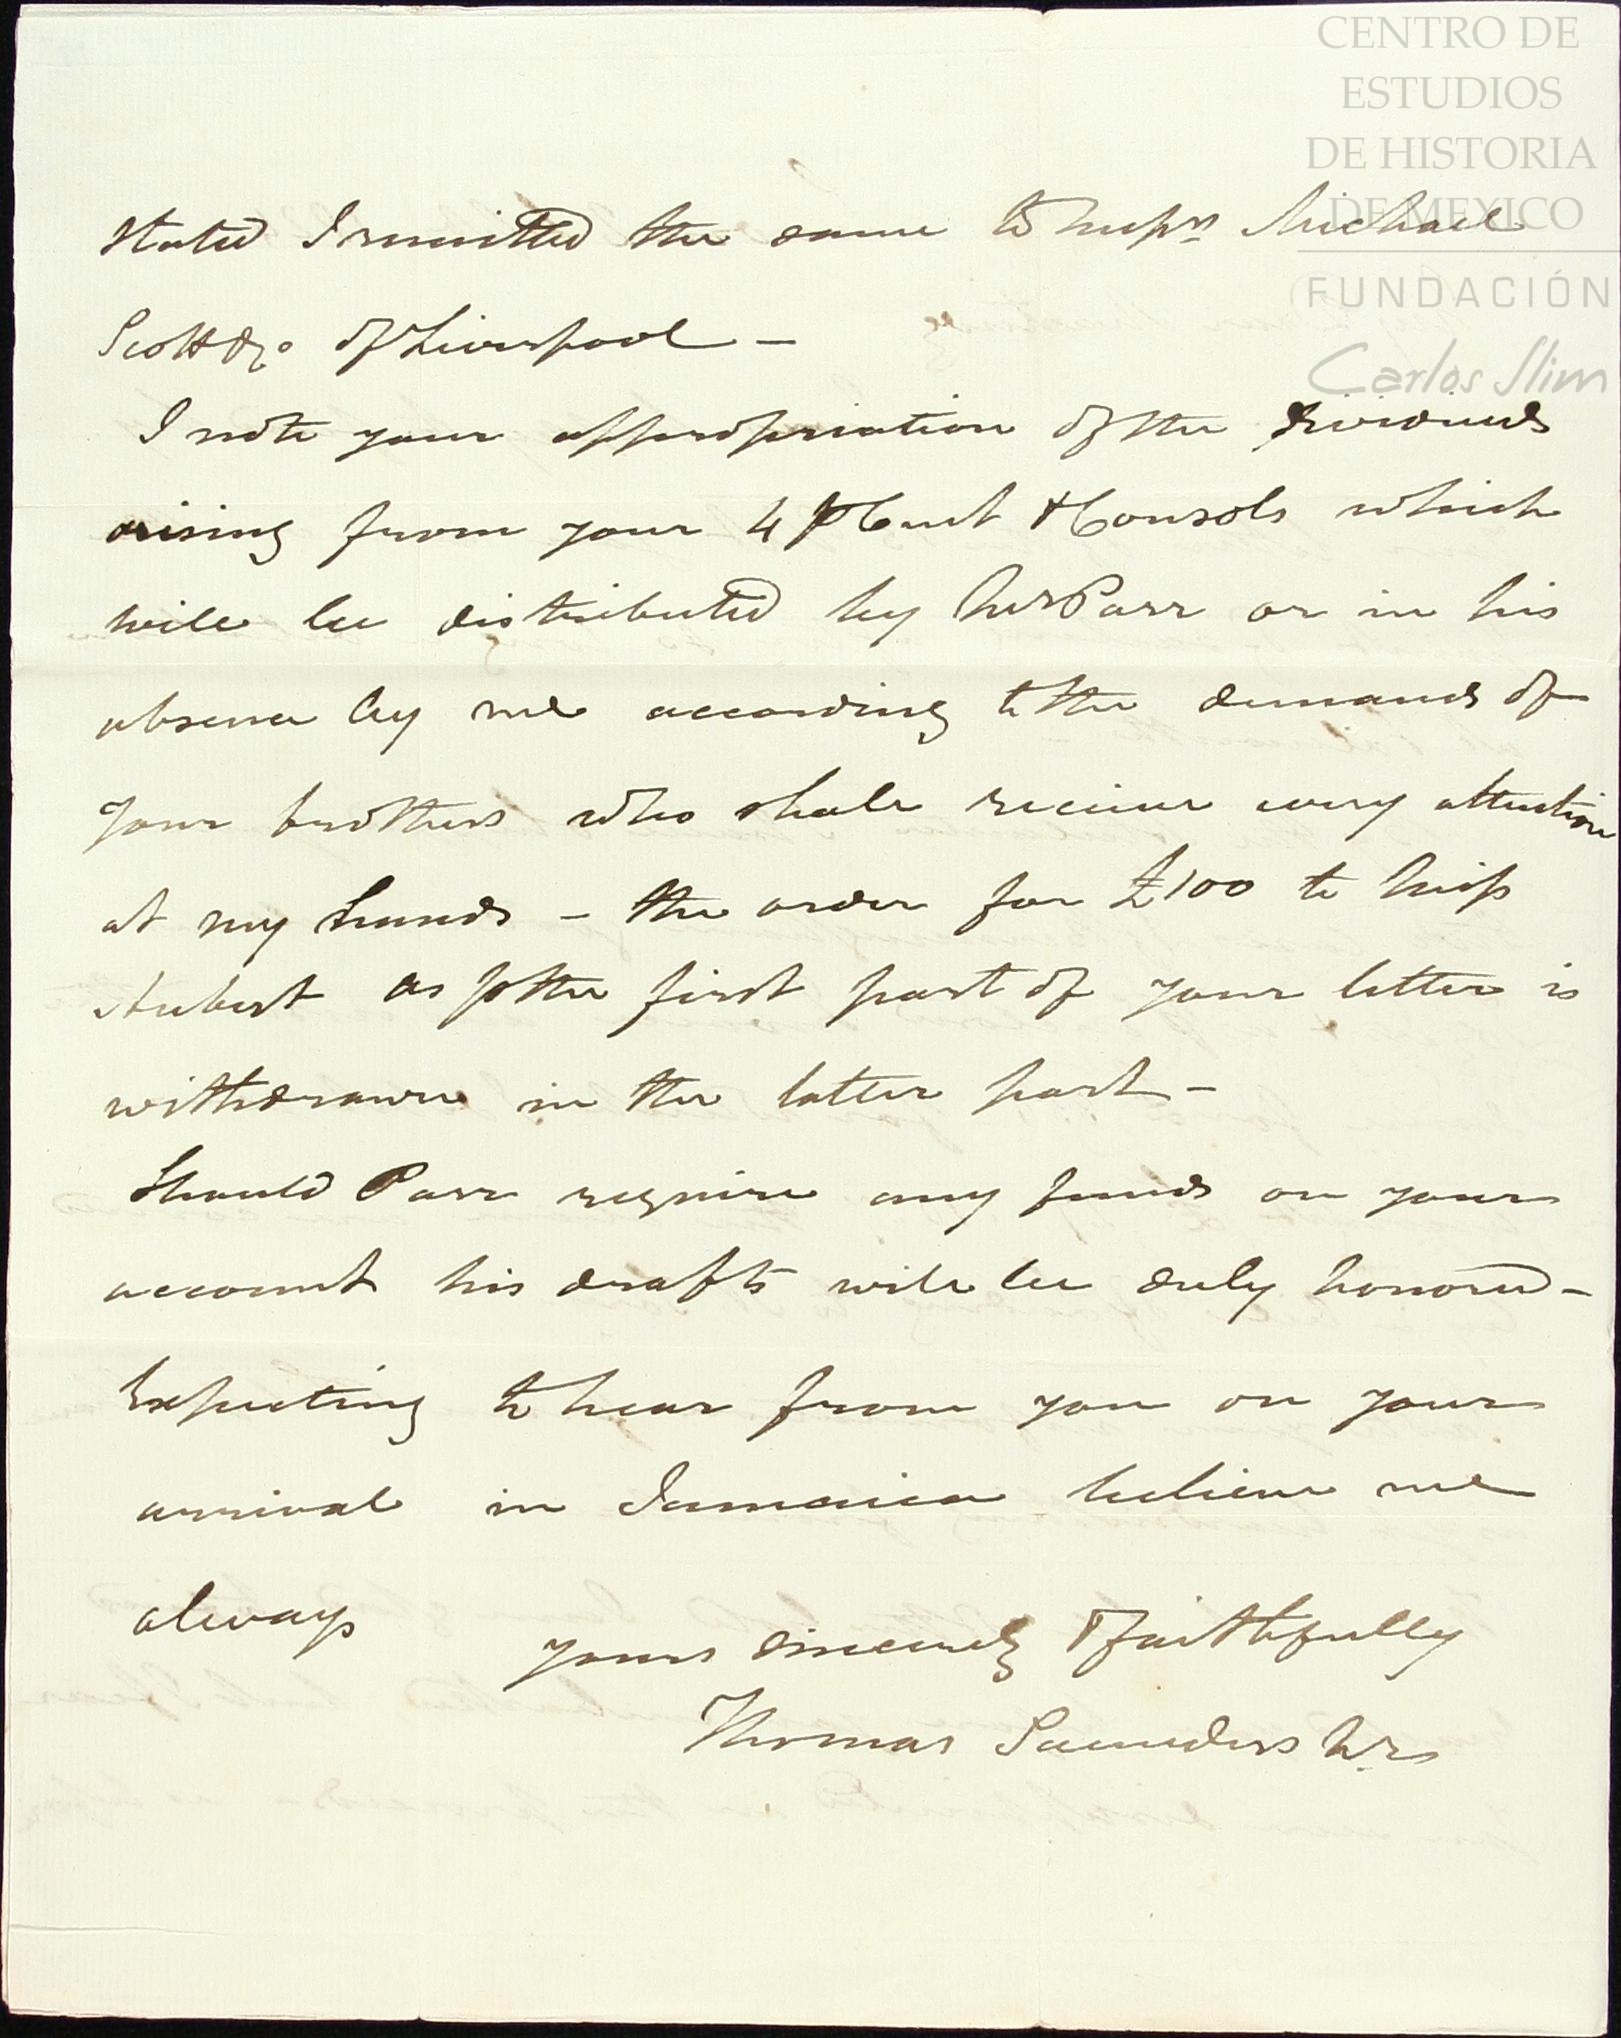 CENTRO DE
ESTUDIOS
DE HISTORIA
DE MEXICO
FUNDACIÓN
Carlos Slim
stated I remitted the same to Messrs Michael
Scott & Co of Liverpool —
I note your appropriation of the dividends
arising from your 4 P Cent & Consols which
will be distributed by Mr Parr or in his
absence by me according to the demands of
your brothers who shall receive every attention
at my hands — the order for £100 to Miss
Aubert as p the first part of your letter is
withdrawn in the latter part —
Should Parr require any funds on your
account his drafts will be duly honored —
Expecting to hear from you on your
arrival in Jamaica believe me
always
yours sincerely & faithfully
Thomas Saunders